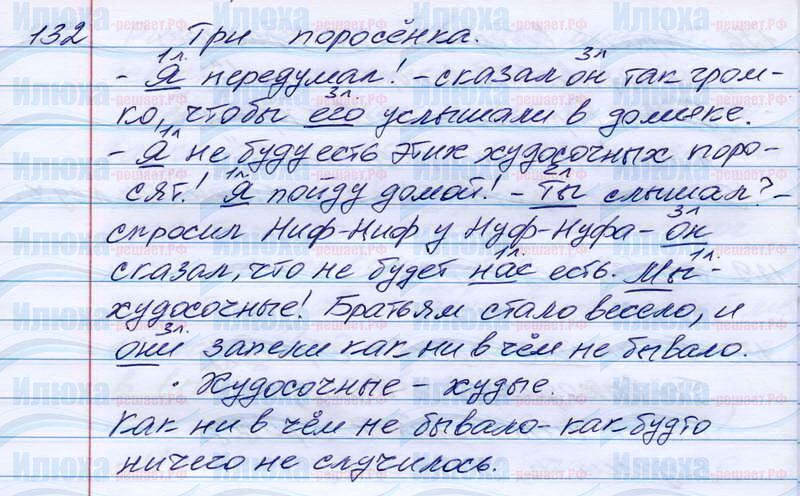 132 Три поросёнка.
1л. 3л.
- Я передумал! - сказал он так гром-
3л.
ко, чтобы его услышали в домике.
1л
- Я не буду есть этих худосочных поро-
1л 2л
сят! Я пойду домой! - Ты слышал? -
3л
спросил Ниф-Ниф у Нуф-Нуфа - он
1л. 1л.
сказал, что не будет нас есть. Мы -
худосочные! Братьям стало весело, и
3л.
они запели как ни в чём не бывало.
· Худосочные - худые.
Как ни в чём не бывало - как будто
ничего не случилось.
Илюха-решает.РФ